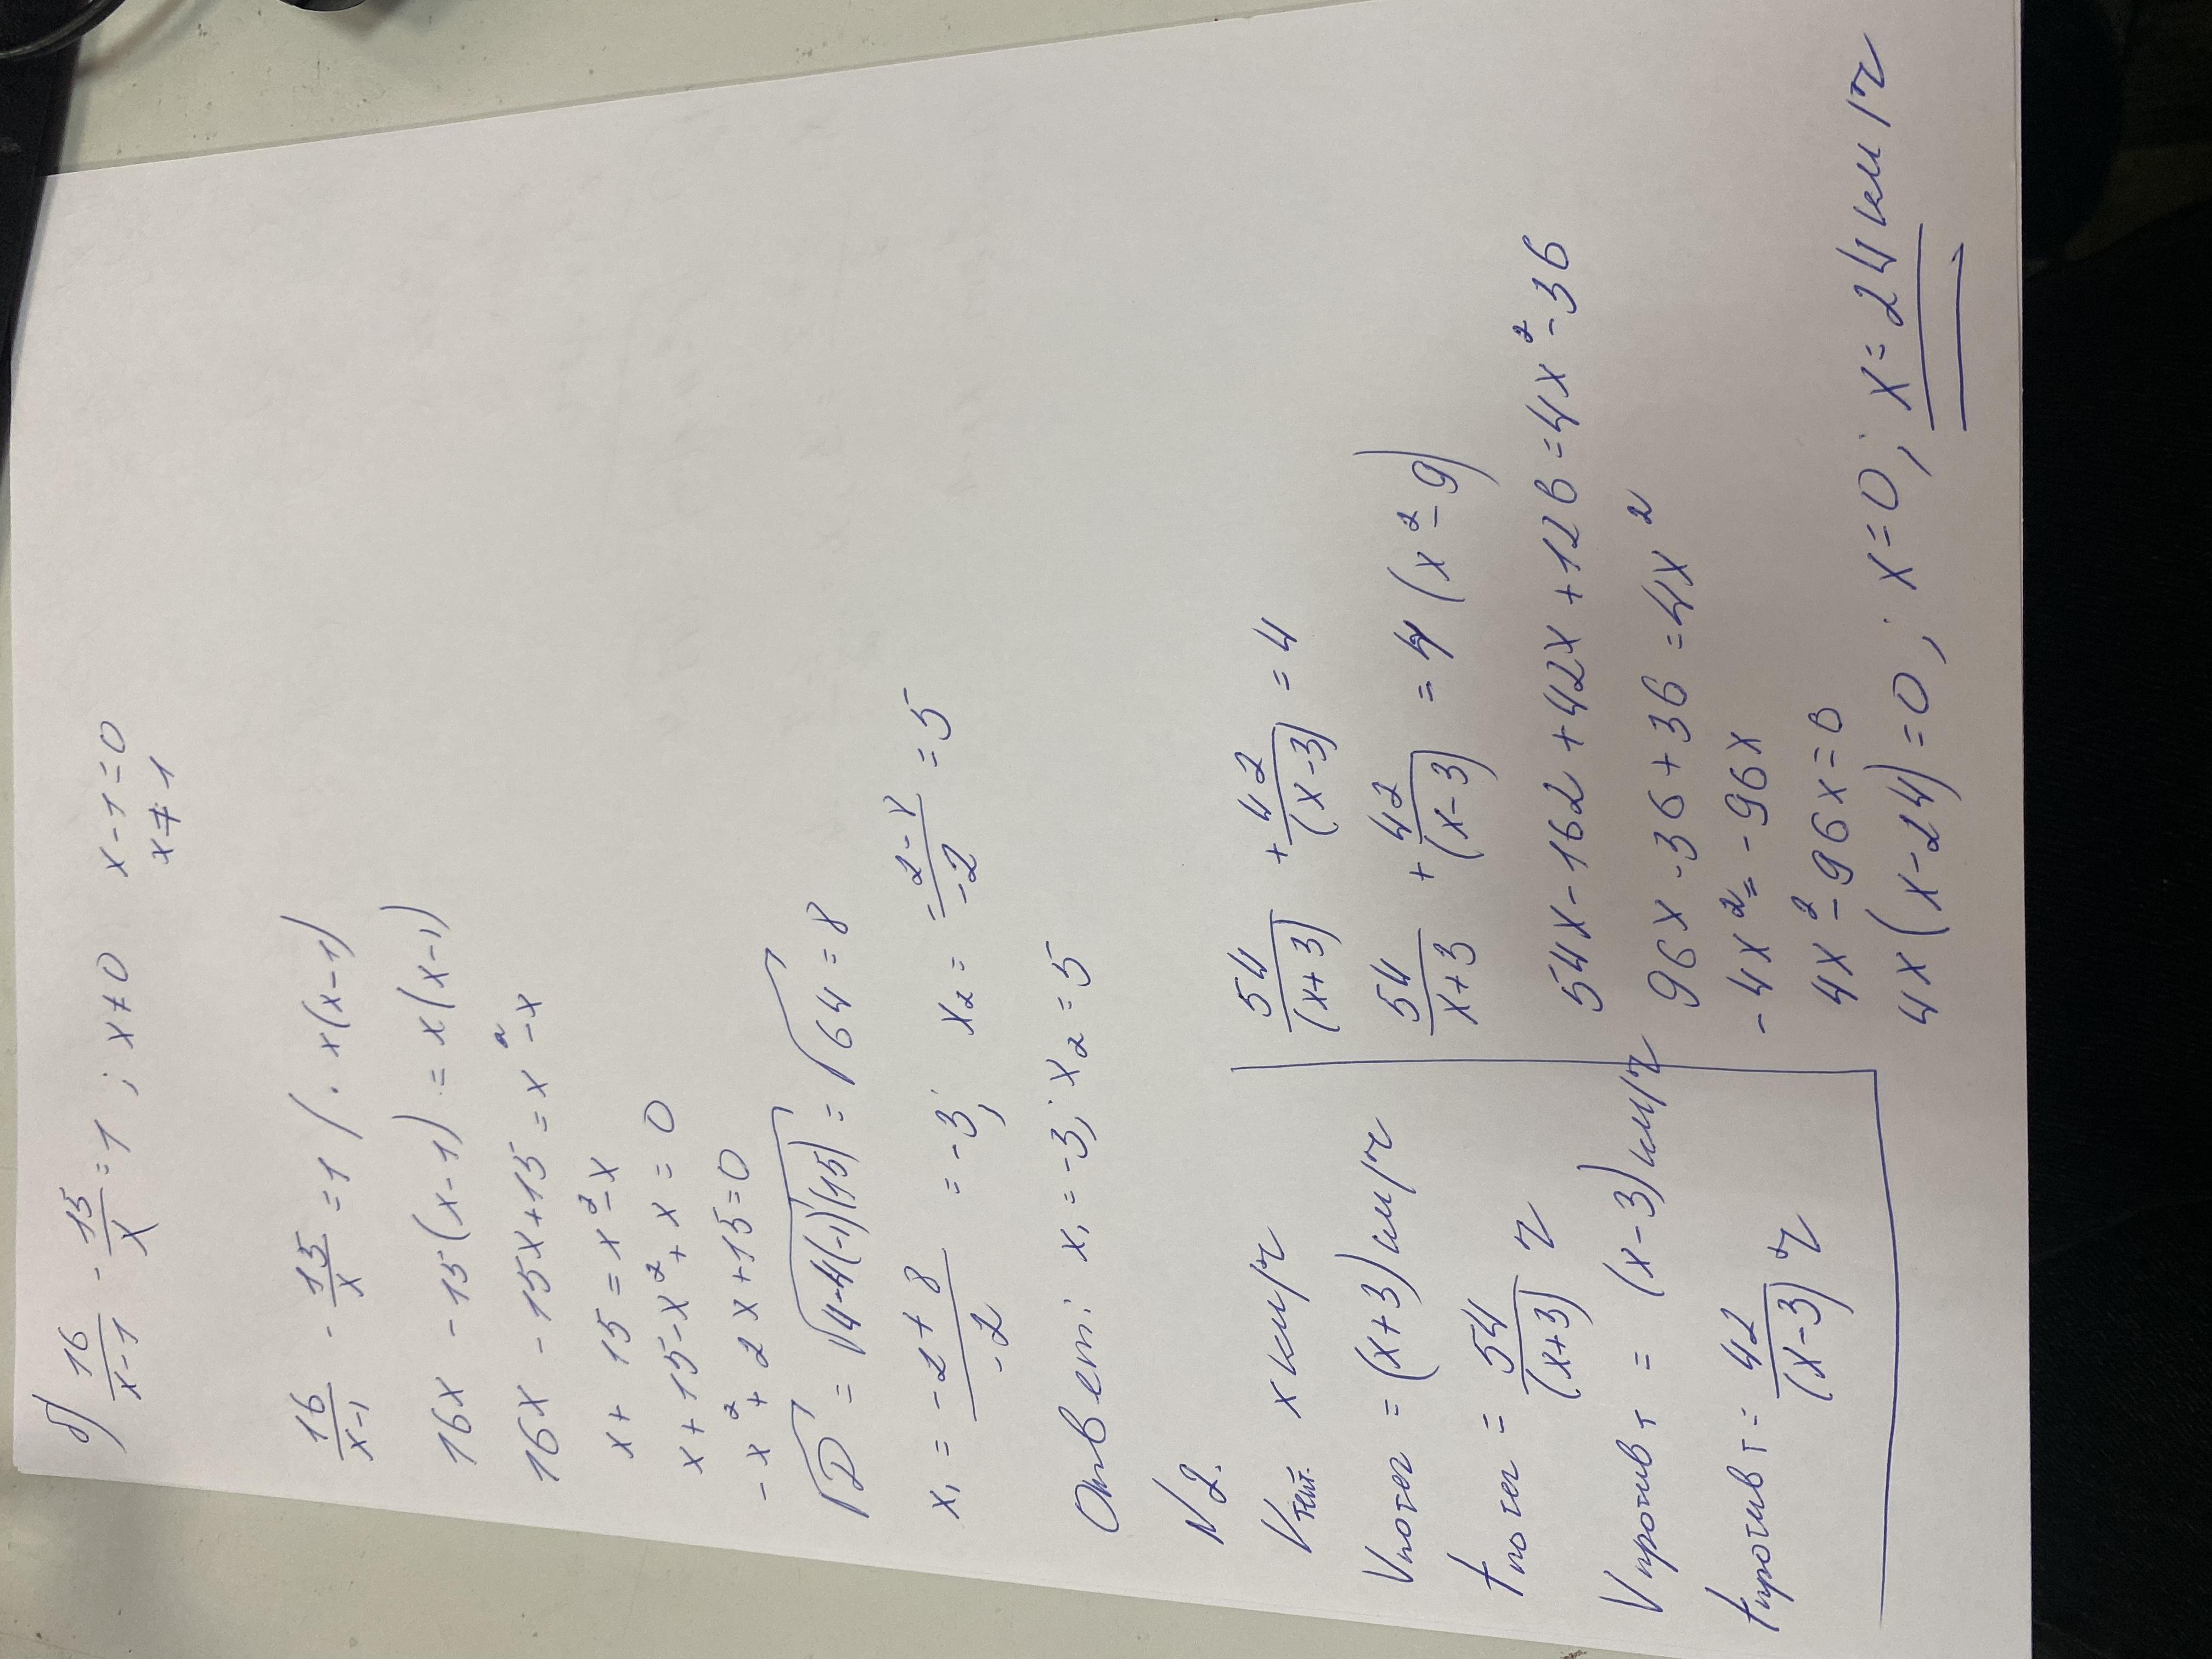 б) 16/(x-1) - 15/x = 1 ; x≠0 x-1=0
x≠1
16/(x-1) - 15/x = 1 / · x(x-1)
16x - 15(x-1) = x(x-1)
16x - 15x+15 = x² - x
x+15 = x² - x
x+15-x²+x=0
-x²+2x+15=0
√D = √(4-4(-1)(15)) = √64 = 8
x₁ = (-2+8)/-2 = -3; x₂ = = 5
Ответ: x₁ = -3; x₂ = 5
N2.
x км/ч
Vпотеч = (x+3) км/ч
tпотеч = 54/(x+3) ч
Vпротив т = (x-3) км/ч
tпротив т = 42/(x-3) ч
54/(x+3) + 42/(x-3) = 4
54/(x+3) + 42/(x-3) = 4 (x²-9)
54x-162+42x+126=4x²-36
96x-36+36=4x²
-4x²=-96x
4x²-96x=0
4x(x-24)=0; x=0; x=24 км/ч